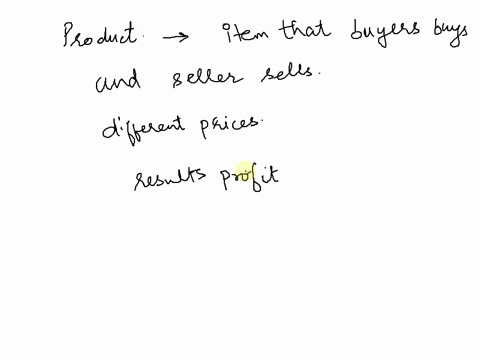 Product. → item that buyers buys
and seller sells.
different prices.
results profit